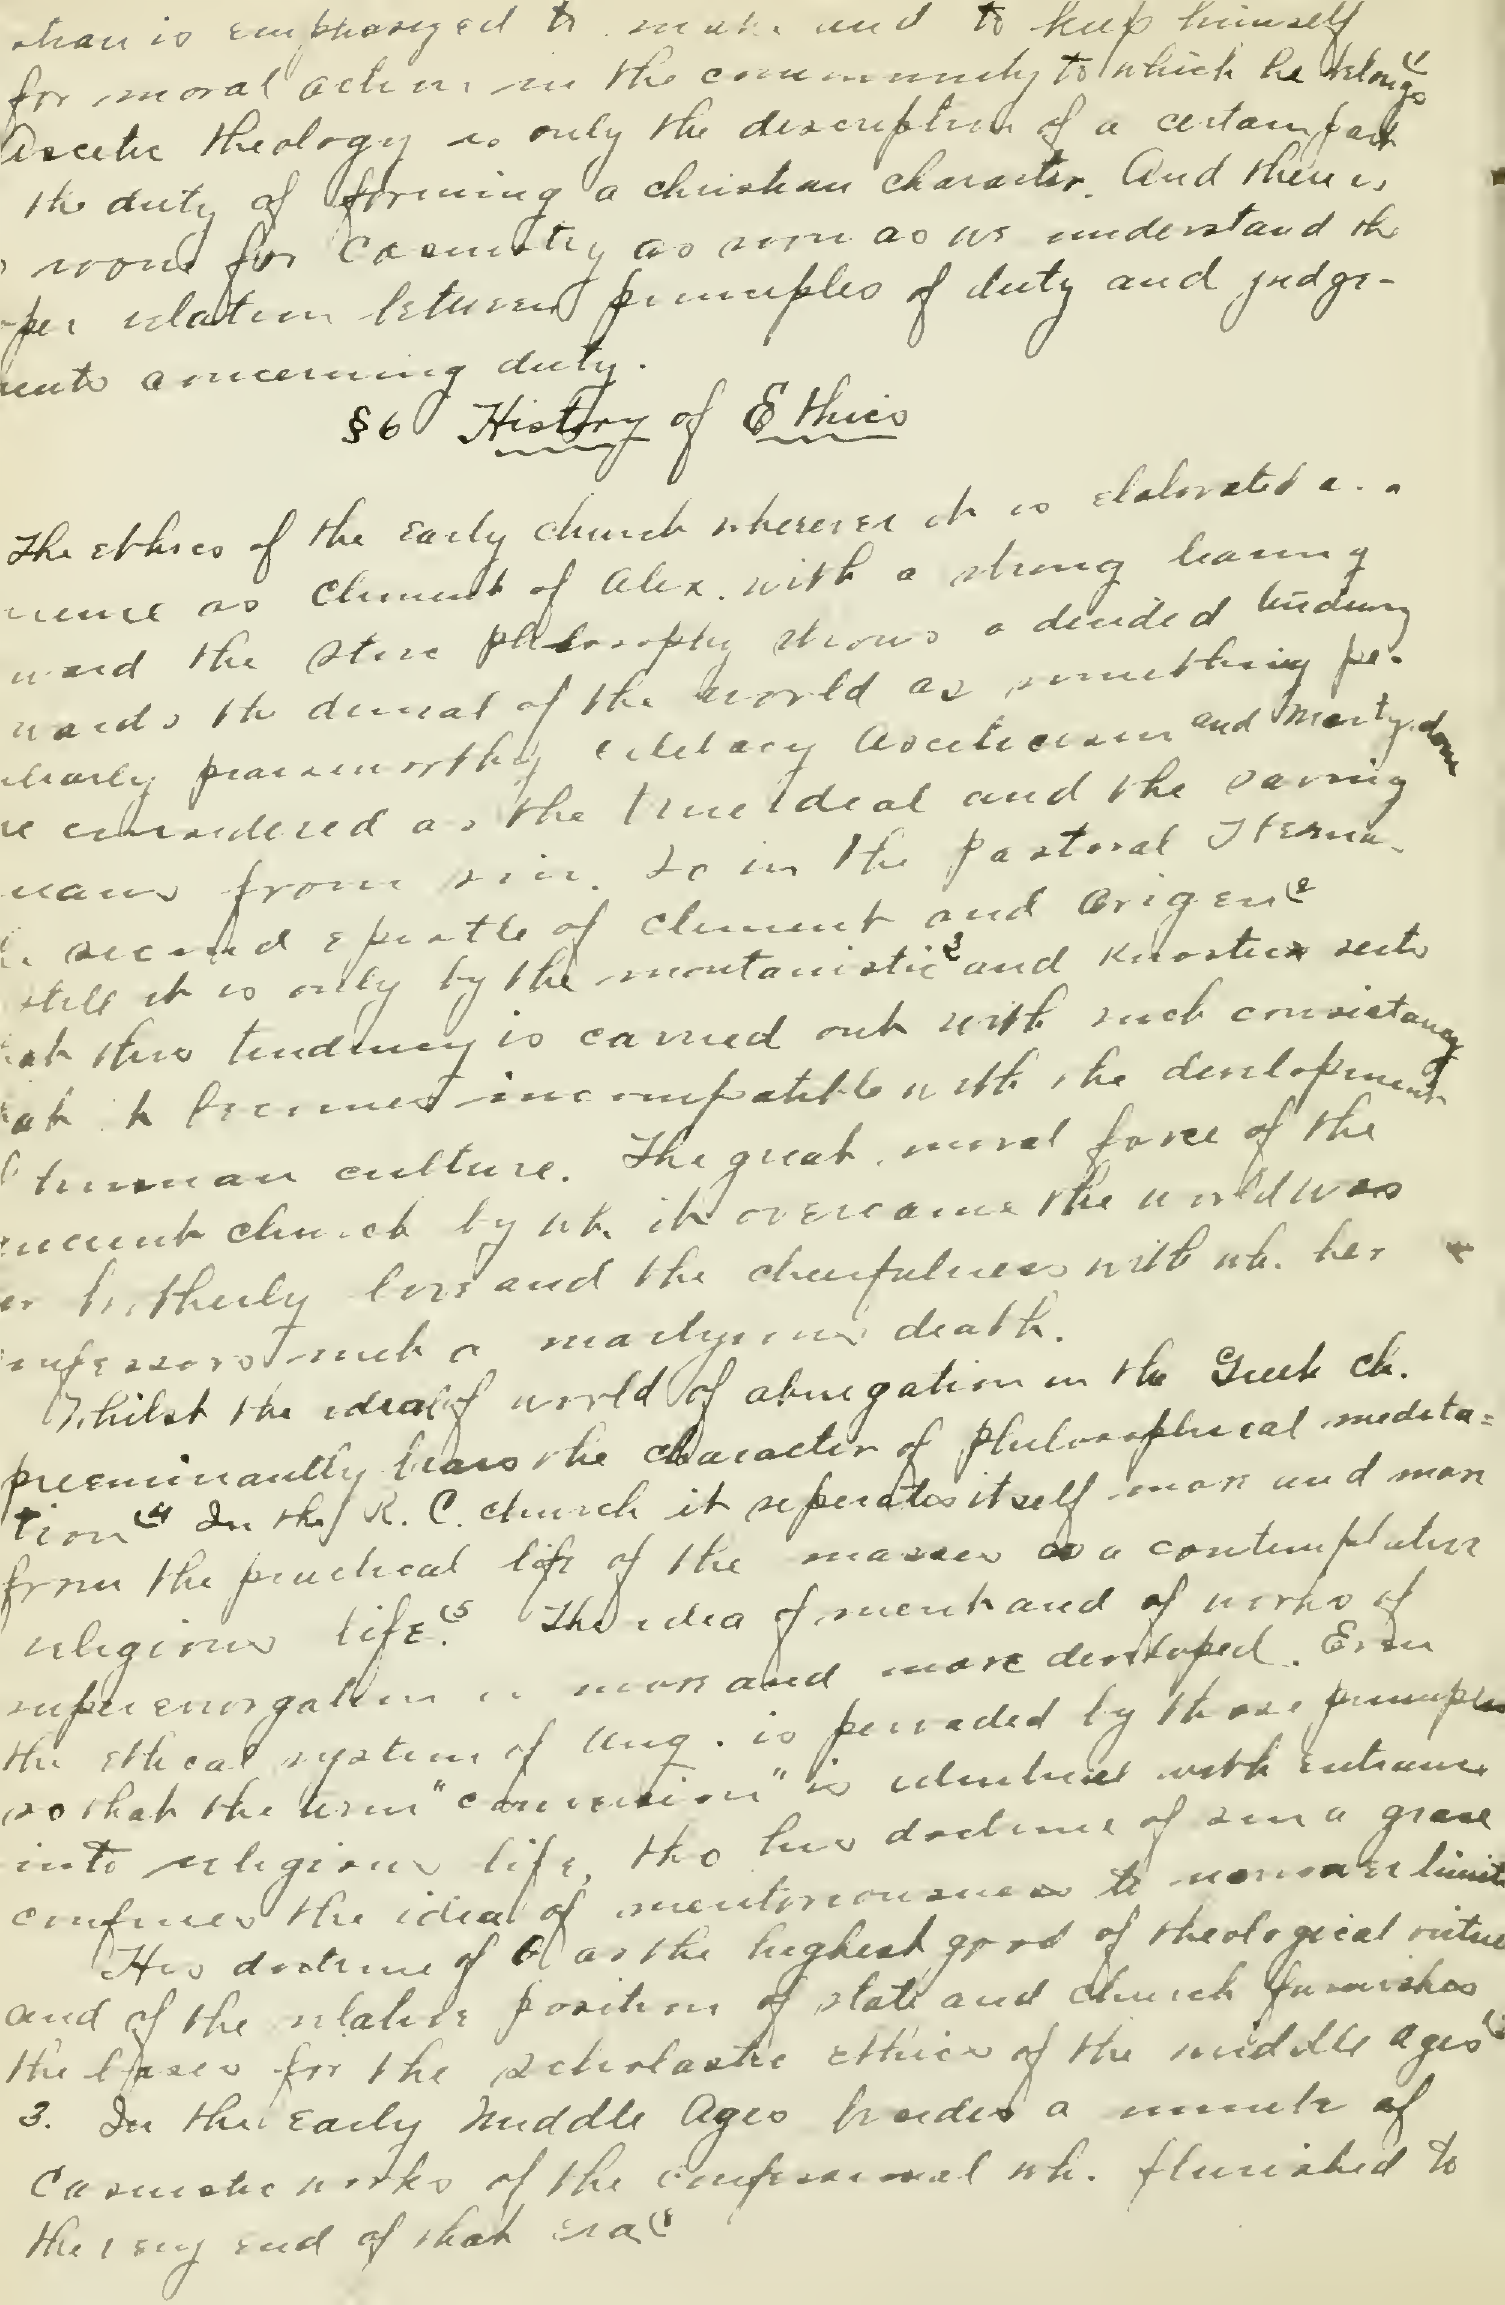 stian is emphasized to make and to keep himself
for moral action in the community to which he belongs (1
Ascetic theology is only the description of a certain part
the duty of forming a christian character. And there is
room for Casuistry as soon as we understand the
-per relation between principles of duty and judge-
ments concerning duty.
§6 History of Ethics
The ethics of the early church wherever it is elaborated a. a
nence as Clement of Alex. with a strong leaning
ward the Stoic philosophy shows a decided tendency
wards the denial of the world as something pe-
liarly praiseworthy celibacy Asceticism and Martyrdom
re considered as the true ideal and the saving
means from sin. So in the Pastoral Herma-
second epistle of Clement and Origen (2
still it is only by the montanistic 3 and Knostic sects
that this tendency is carried out with such consistancy
that it becomes incompatible with the development
human culture. The great moral force of the
ancient church by wh. it overcame the world was
er brotherly love and the cheerfulness with wh. her
confessors met a martyrs death.
Whilst the ideal of world of abnegation in the Greek ch.
preeminantly bears the character of philosophical medita=
tion (4 In the R. C. church it seperates itself more and more
from the practical life of the masses as a contemplative
religious life. (5 The idea of merit and of works of
supererrogation is more and more developed. Even
the ethical system of Aug. is pervaded by those principles
so that the term "conversion" is identical with entrance
into religious life, tho his doctrine of sin a grace
confines the idea of meritoriousness to narrower limits
His doctrine of G as the highest good of theological virtue
and of the relative position of state and church furnishes
the bases for the scholastic ethics of the middle Ages
3. In the Early Middle Ages besides a number of
Casuistic works of the confessional wh. flurished to
the very end of that era (1